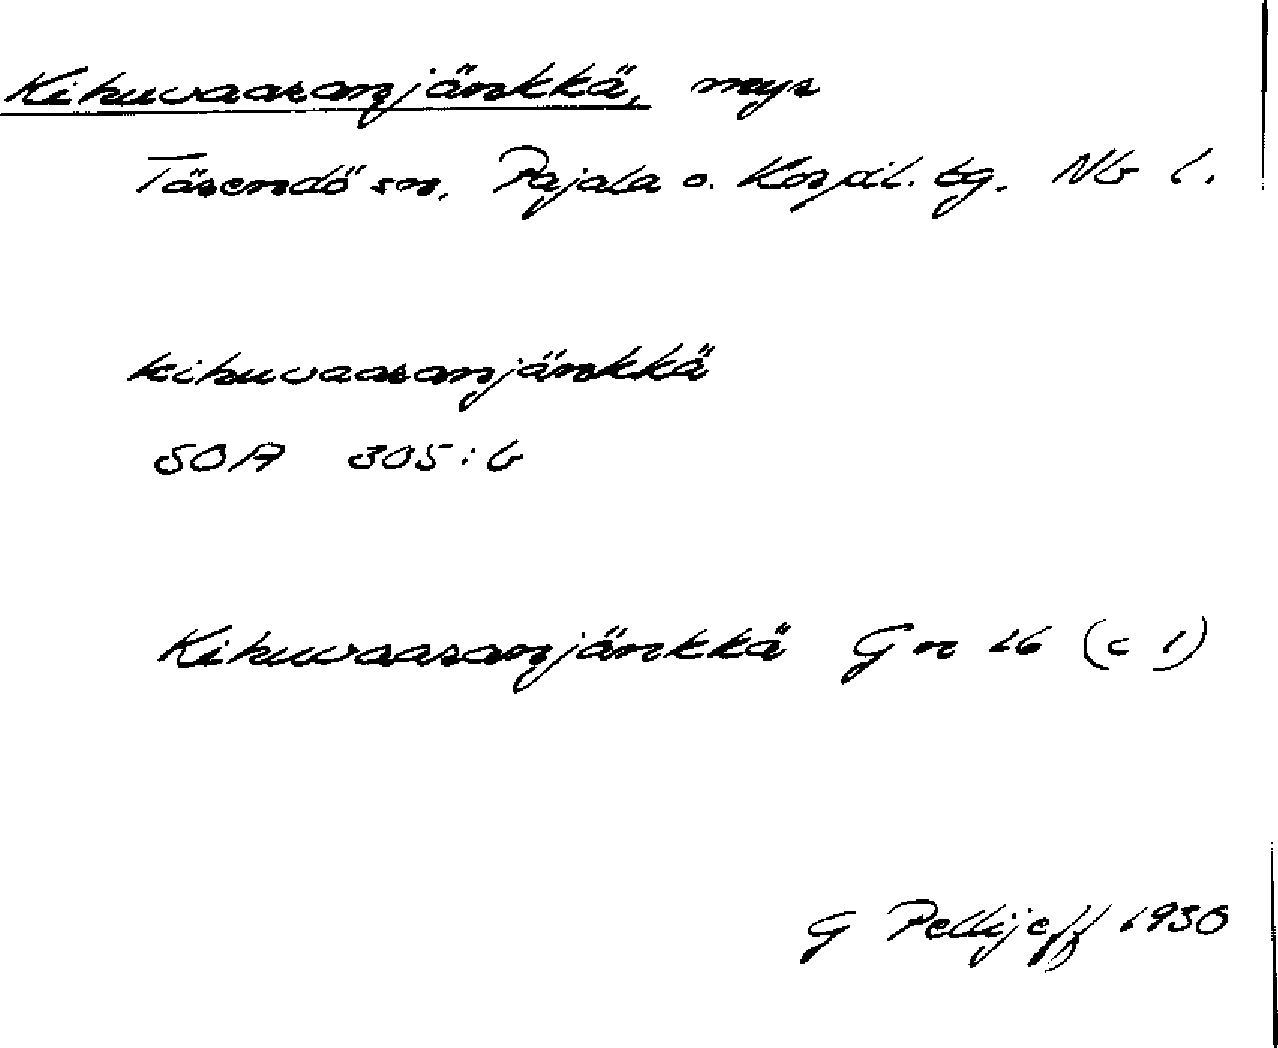 Kihuvaaranjänkkä, myr
Tärendö sn, Pajala o. Korpil. tg. Nb l.
kihuvaaranjänkkä
SOA 305:6
Kihuvaaranjänkkä Gn 26 (c 1)
G Pellijeff 1950